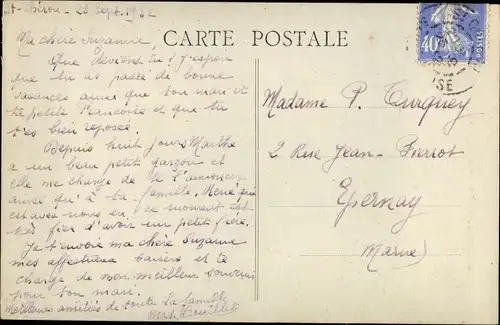 28 Sept. 1932
CARTE POSTALE
Ma chère Suzanne,
Que deviens tu ! J'espère
que tu as passé de bonne
vacances ainsi que ton mari et
ta petite Francoise et que tu
t'es bien reposée.
Depuis huit jours Marthe
a un beau petit garçon et
elle me charge de te l'annoncer
ainsi qu'à ta famille. René qui
est avec nous en ce moment est
très fier d'avoir un petit frère.
Je t'envoie ma chère Suzanne
mes affectueux baisers et te
charge de mon meilleur souvenir
pour ton mari.
Meilleures amitiés de toute la famille
40
Madame P. Turquey
2 Rue Jean-
Epernay
Marne)